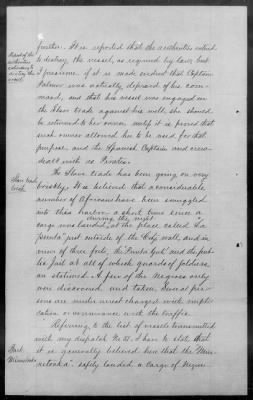 justice. It is reported that the authorities intend
to destroy the vessel, as required by law; but
I presume, if it is made evident that Captain
Palmer was actually deprived of his com-
mand, and that his vessel was engaged in
the Slave trade against his will, she should
be returned to her owner, unless it is proved that
such owner allowed her to be used for that
purpose, and the Spanish Captain and crew
dealt with as Pirates.
Slave trade
brisk.
The Slave trade has been going on very
briskly. It is believed that a considerable
number of Africans have been smuggled
into this harbor a short time since. A
during the night
cargo was landed, at the place called "La
Punta" just outside of the City wall, and in
view of three forts, the Punta Gate and the pub-
lic Jail at all of which guards of soldiers
are stationed. A few of the Negroes only
were discovered and taken. Several per-
sons are under arrest charged with impli-
cation or connivance with the traffic.
"Referring to the list of vessels transmitted
with my dispatch No. I have to state that
it is generally believed here that the "Min-
netonka" safely landed a cargo of Negroes
Bark
Minnetonka